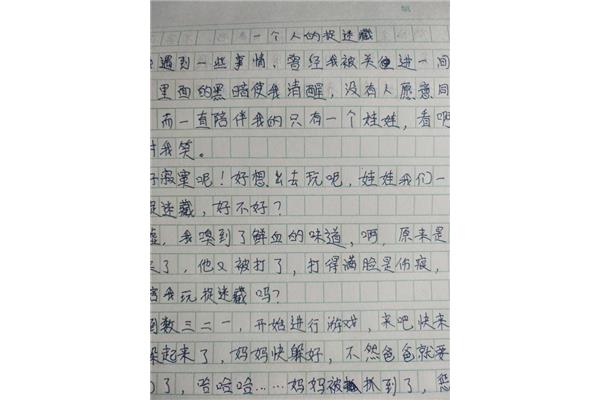 一个人的捉迷藏
遇到一些事情，曾经我被关进一间
里面的黑暗使我清醒，没有人愿意同
而一直陪伴我的只有一个娃娃，看啊
对我笑。
好寂寞呢！好想出去玩吧，娃娃我们一
捉迷藏，好不好？
嘘，我嗅到了鲜血的味道，啊，原来是
了，他又被打了，打得满脸是伤疲，
我玩捉迷藏吗？
倒数三二一，开始进行游戏，来吧快来
躲起来了，妈妈快躲好，不然爸爸就要
了，哈哈哈……妈妈被抓到了，